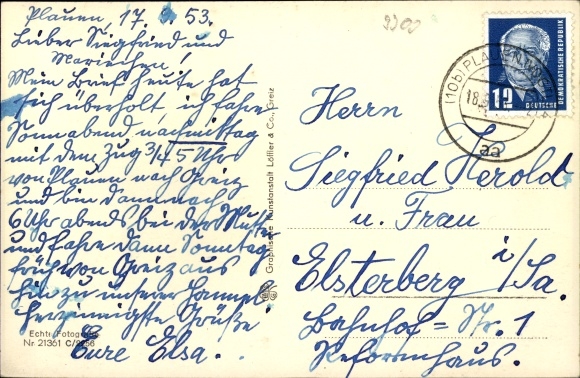 Plauen, 17. 9. 53.
Lieber Siegfried und
Mariechen!
Mein Brief heute hat
sich überholt, ich fahre
Sonnabend nachmittag
mit dem Zug 3/4 5 Uhr
von Plauen nach Greiz
und bin dann nach
6 Uhr abends bei der Mutter
und fahre dann Sonntag
früh von Greiz aus
hin zu unserer
Herzinnigste Grüße
Eure Elsa.
Echte Fotogr
Nr 21361 C/2956
Graphische Kunstanstalt Löffler & Co., Greiz
2300
12
DEUTSCHE
DEMOKRATISCHE REPUBLIK
(10b) PLAUEN
18.
aa
Herrn
Siegfried Herold
u. Frau
Elsterberg i/Sa.
Bahnhof=Str. 1
Reformhaus.